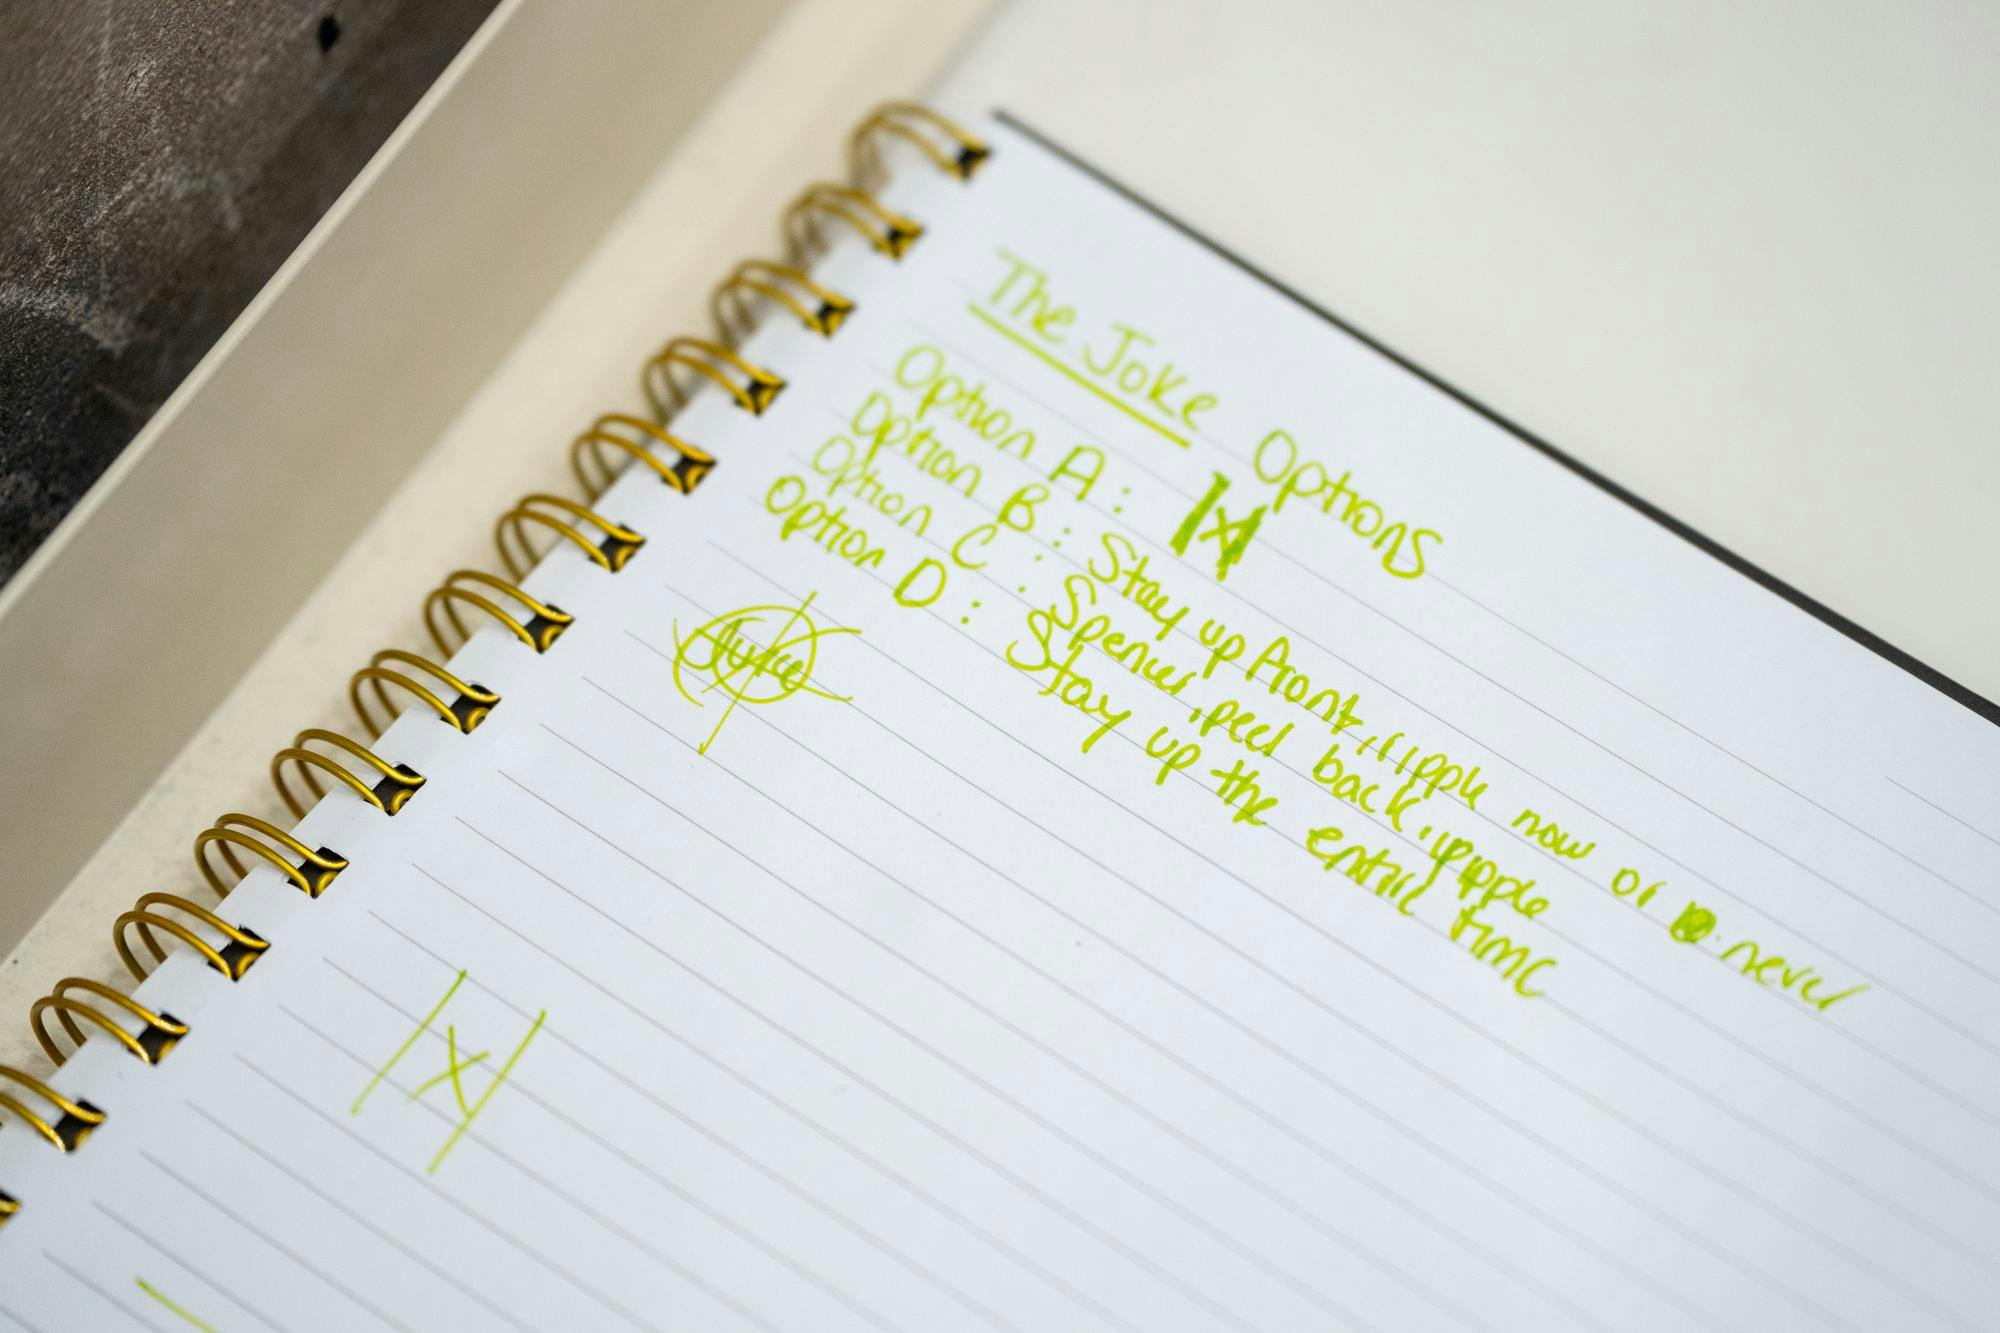 The Joke Options
Option A: |x|
Option B: Stay up front, ripple now or never
Option C: Spencer, peel back, ripple
Option D: Stay up the entire time
|x|